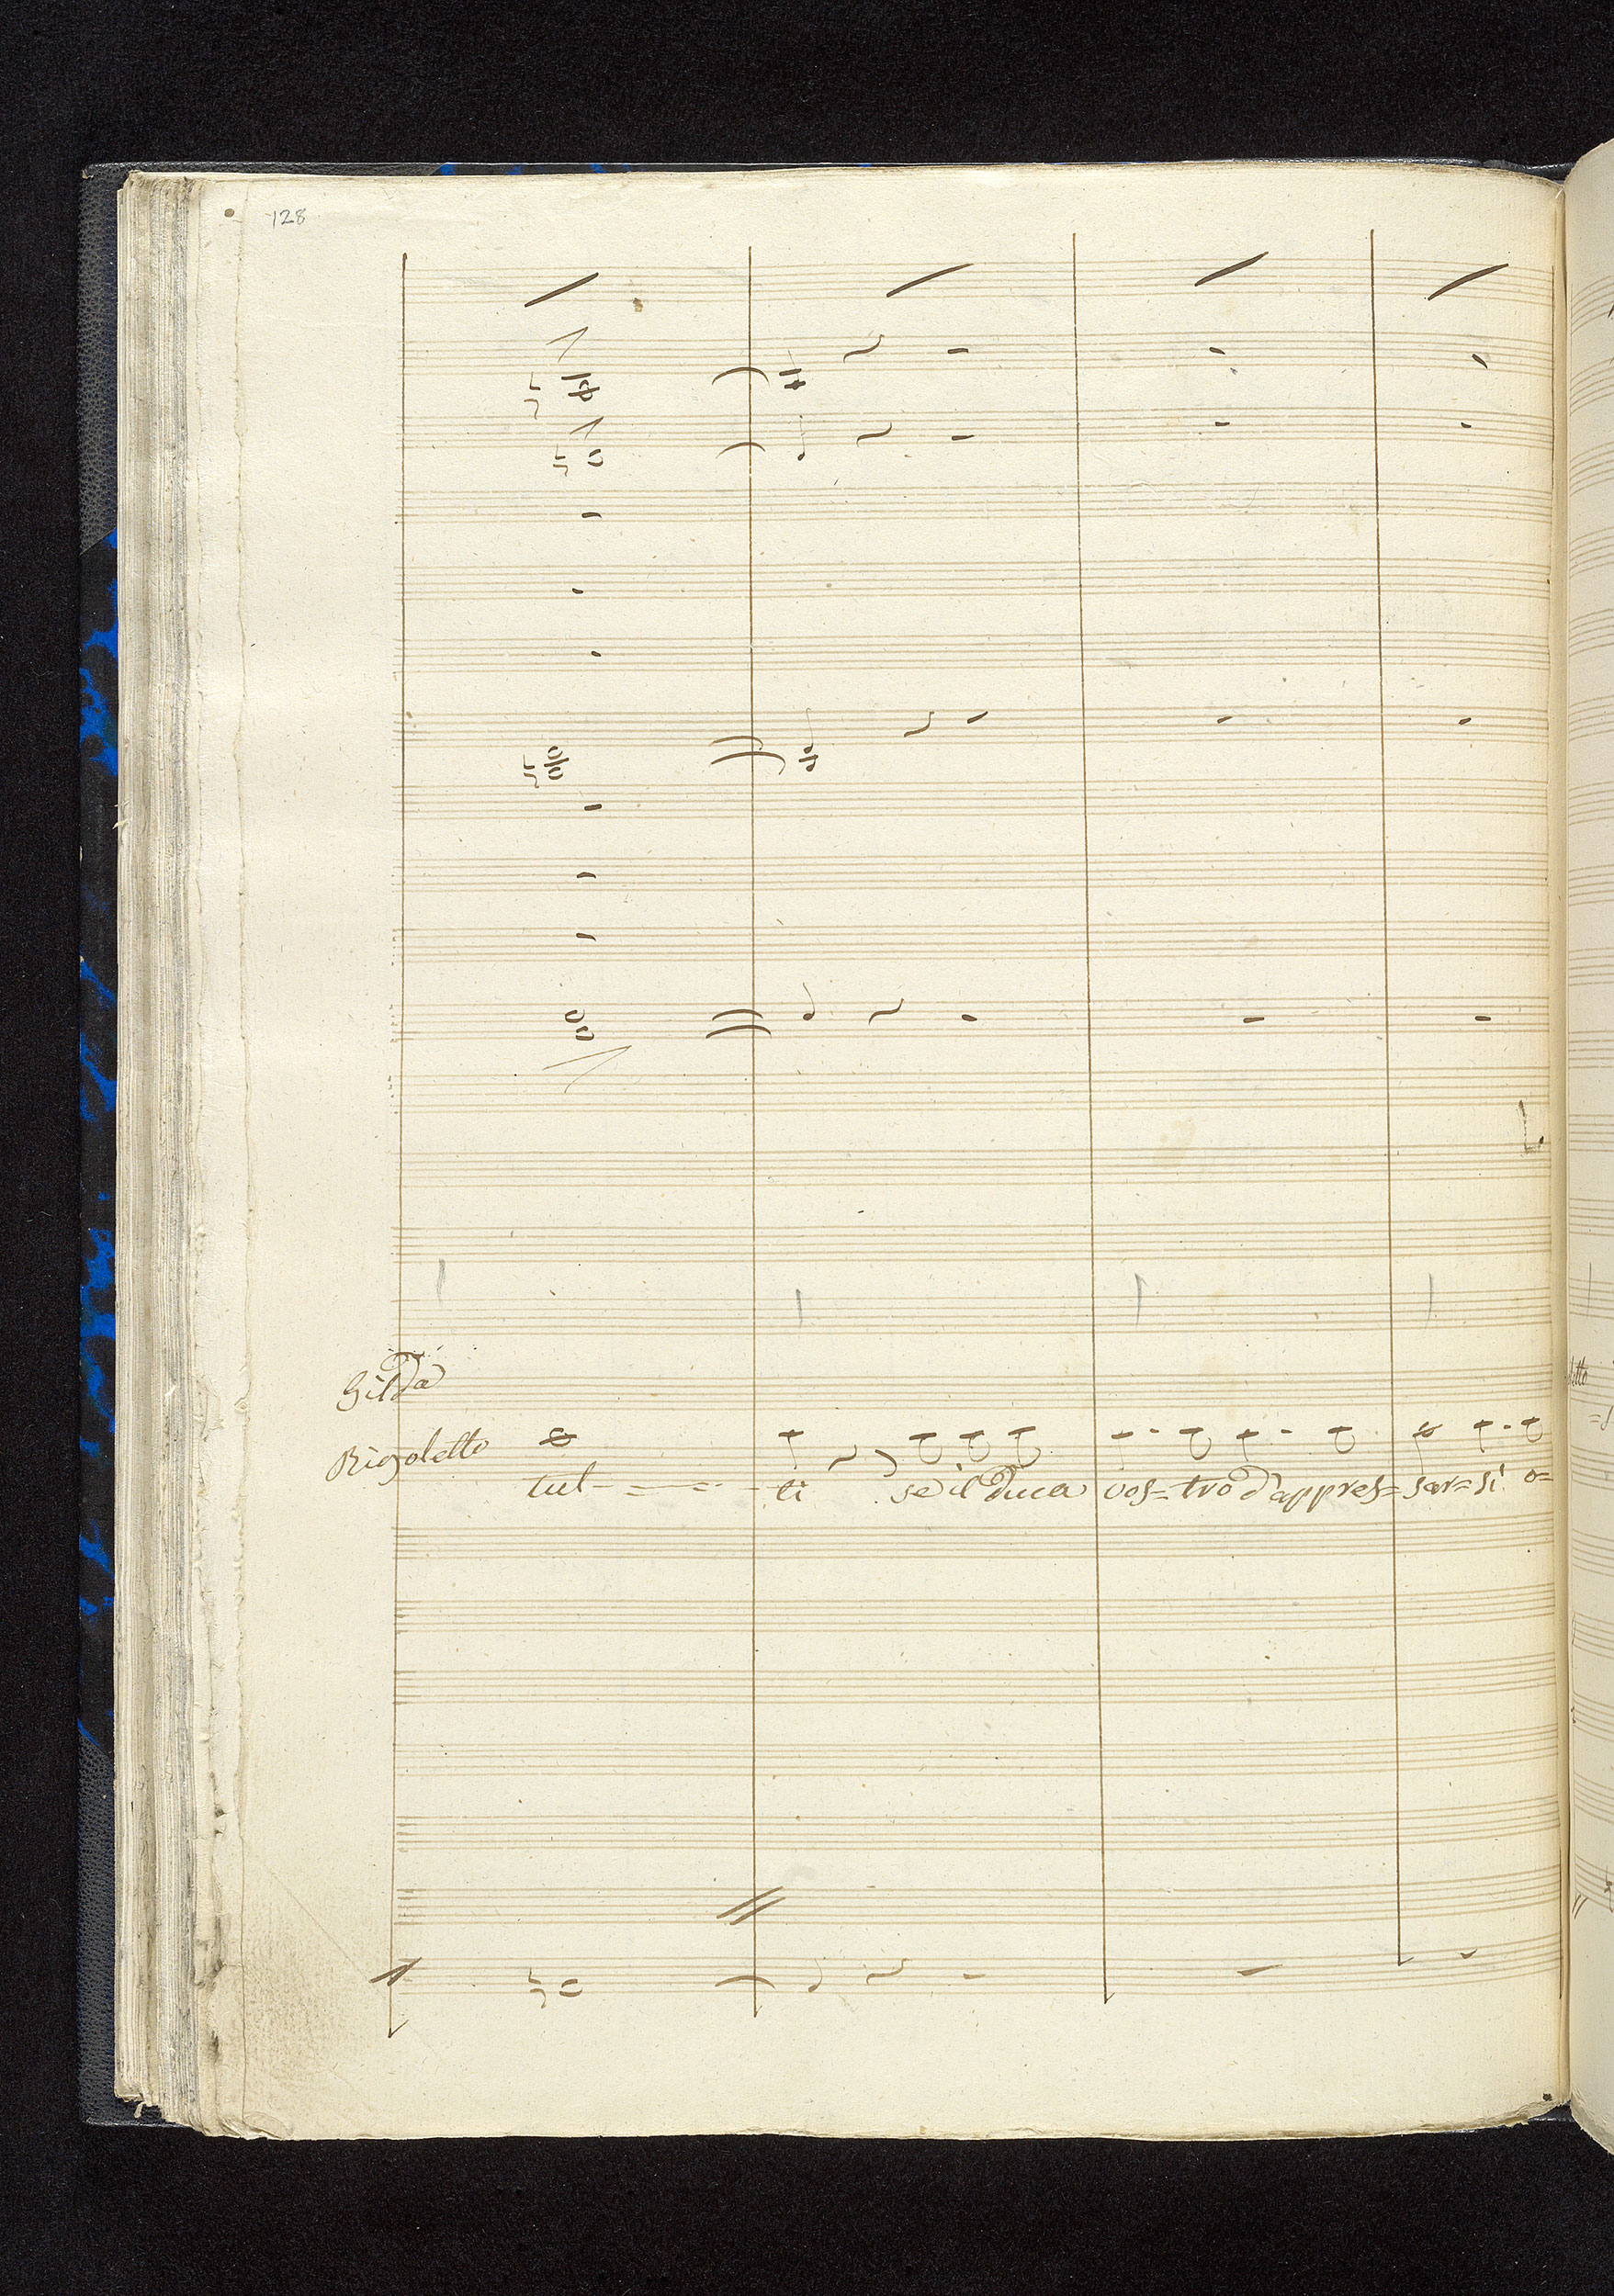 128
Gilda
Rigoletto
tut- = = - ti se il Duca vos= tro d'appres= sar= si o=